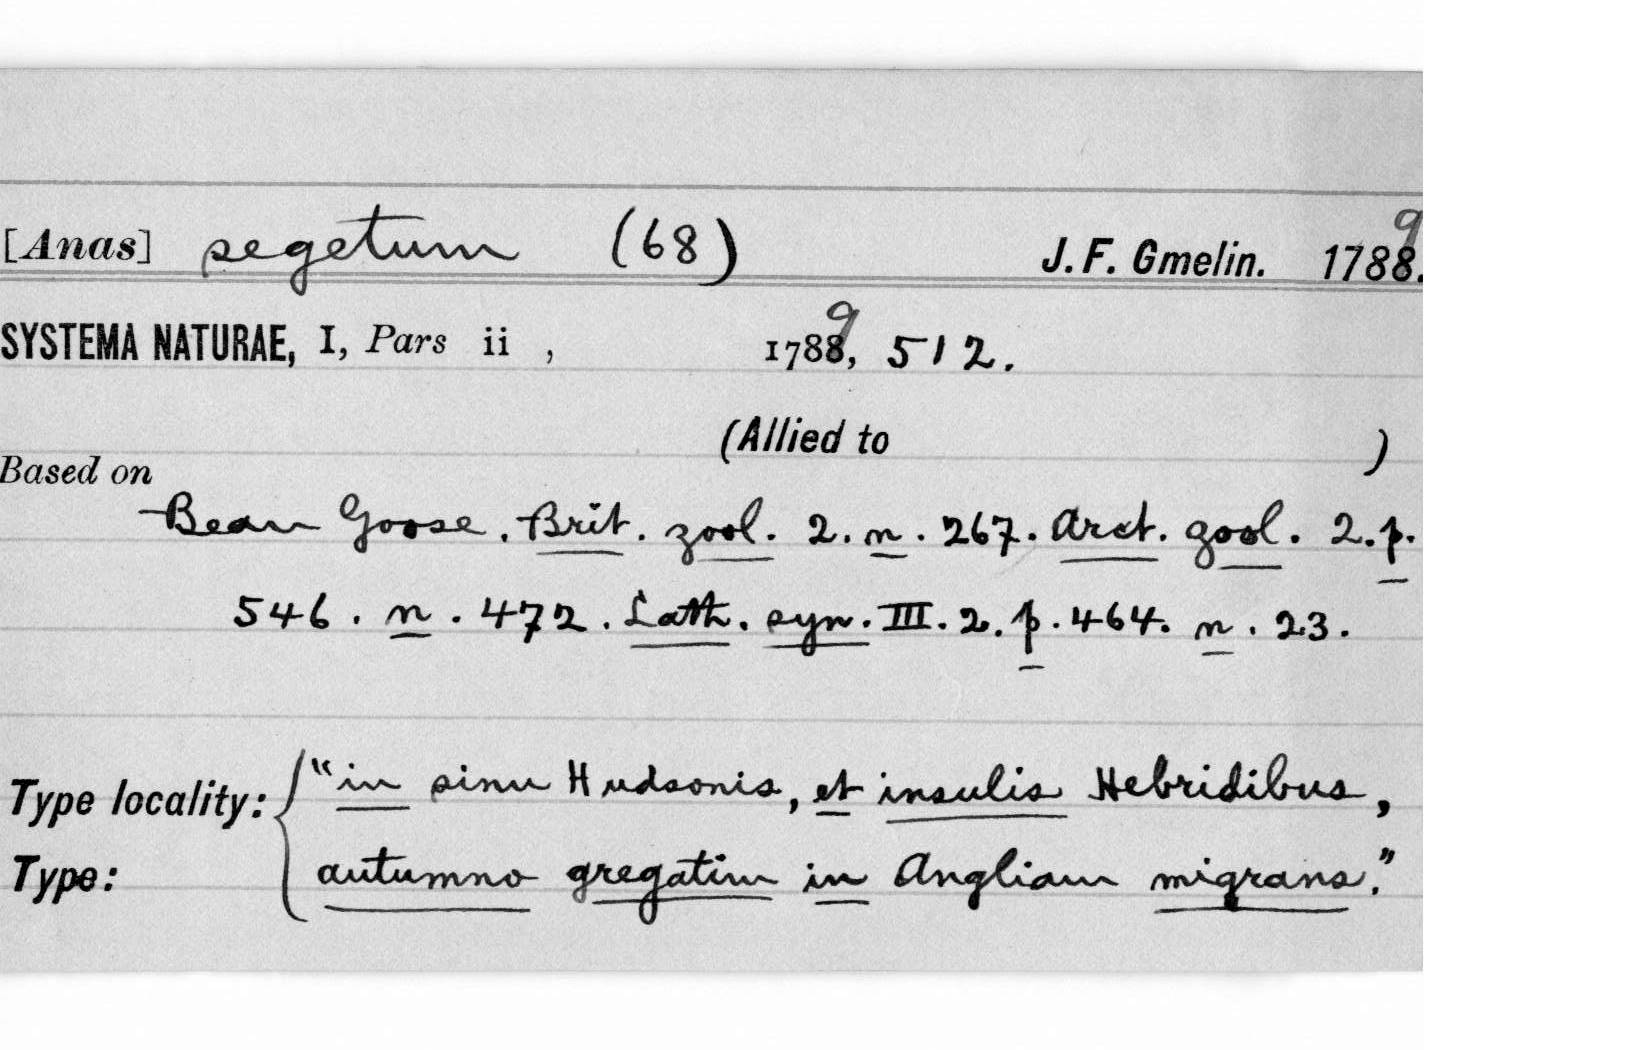 [Anas] segetum (68) J. F. Gmelin. 17889.
SYSTEMA NATURAE, I, Pars ii , 17889, 512.
(Allied to )
Based on
Bean Goose. Brit. zool. 2. n. 267. Arct. zool. 2. p.
546. n. 472. Lath. syn. III. 2. p. 464. n. 23.
Type locality: "in sinu Hudsonis, et insulis Hebridibus,
Type: autumno gregatim in Angliam migrans."